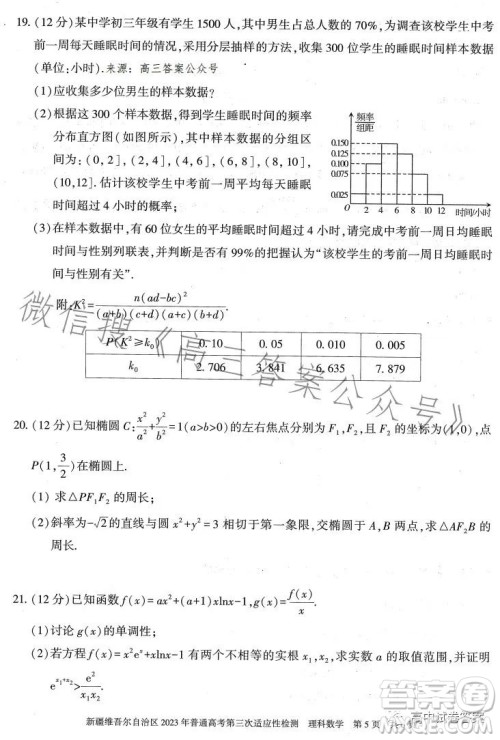 19. (12 分)某中学初三年级有学生 1500 人,其中男生占总人数的 70%,为调查该校学生中考
前一周每天睡眠时间的情况,采用分层抽样的方法,收集 300 位学生的睡眠时间样本数据
(单位:小时).来源:高三答案公众号
(1)应收集多少位男生的样本数据?
(2)根据这 300 个样本数据,得到学生睡眠时间的频率
分布直方图(如图所示),其中样本数据的分组区
间为:(0,2],(2,4],(4,6],(6,8],(8,10],
(10,12].估计该校学生中考前一周平均每天睡眠
时间超过 4 小时的概率;
频率
组距
0.150
0.125
0.100
0.075
0.025
O 2 4 6 8 10 12 时间/小时
(3)在样本数据中,有 60 位女生的平均睡眠时间超过 4 小时,请完成中考前一周日均睡眠时
间与性别列联表,并判断是否有 99%的把握认为“该校学生的考前一周日均睡眠时
间与性别有关”.
附:K²=n(ad-bc)²/((a+b)(c+d)(a+c)(b+d))
P(K²≥k₀) 0.10 0.05 0.010 0.005
k₀ 2.706 3.841 6.635 7.879
20. (12 分)已知椭圆 C:x²/a²+y²/b²=1(a>b>0)的左右焦点分别为 F₁,F₂,且 F₂ 的坐标为(1,0),点
P(1,3/2)在椭圆上.
(1) 求△PF₁F₂ 的周长;
(2)斜率为-√2的直线与圆 x²+y²=3 相切于第一象限,交椭圆于 A,B 两点,求△AF₂B 的
周长.
21. (12 分)已知函数 f(x)=ax²+(a+1)xlnx-1,g(x)=f(x)/x.
(1)讨论 g(x)的单调性;
(2)若方程 f(x)=x²eˣ+xlnx-1 有两个不相等的实根 x₁,x₂,求实数 a 的取值范围,并证明
e^(x₁+x₂)>e²/(x₁x₂).
新疆维吾尔自治区 2023 年普通高考第三次适应性检测 理科数学 第 5 页
微信搜《高三答案公众号》
高中试卷答案